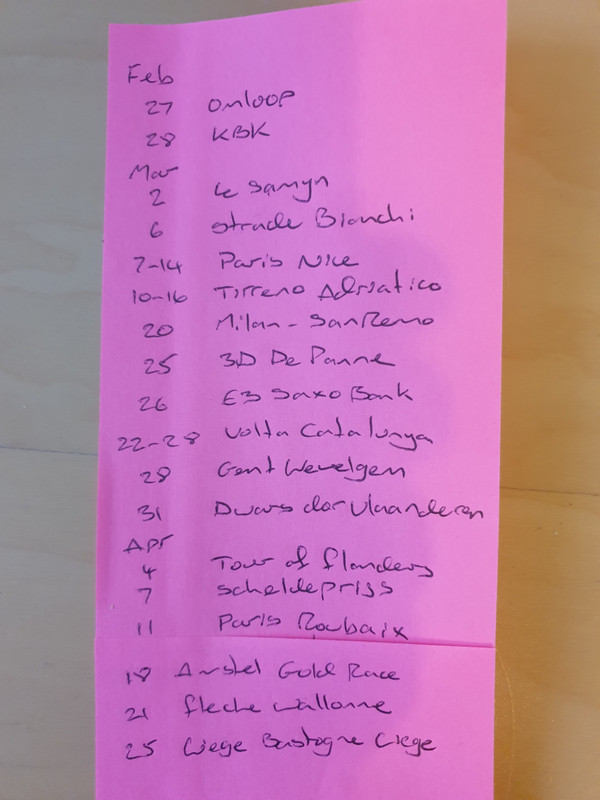 Feb
27 Omloop
28 KBK
Mar
2 Le Samyn
6 Strade Bianchi
7-14 Paris Nice
10-16 Tirreno Adriatico
20 Milan-SanRemo
25 3D De Panne
26 E3 Saxo Bank
22-28 Volta Catalunya
28 Gent Wevelgem
31 Dwars dor Vlaanderen
Apr
4 Tour of flanders
7 Scheldeprijs
11 Paris Roubaix
18 Amstel Gold Race
21 fleche Wallonne
25 Liege Bastogne Liege